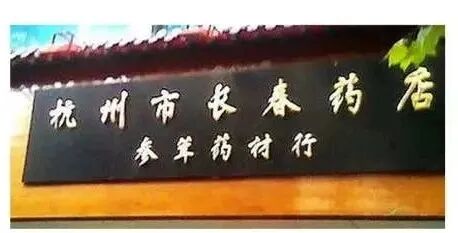 杭州市长春药店
参茸药材行